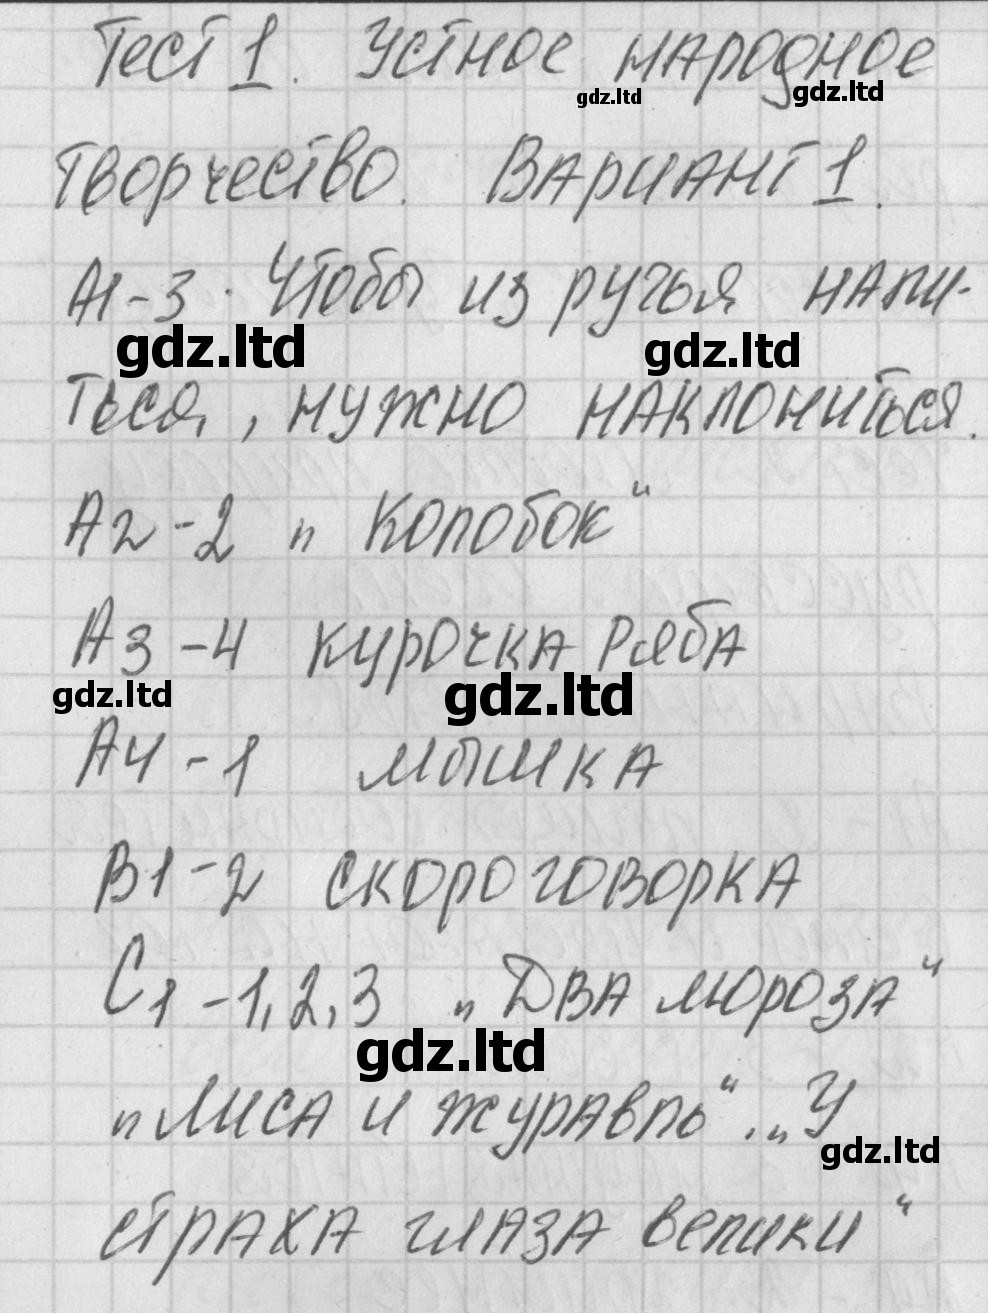 Тест 1. Устное народное
gdz.ltd gdz.ltd
творчество. Вариант 1.
А1-3. Чтобы из ручья напи-
gdz.ltd gdz.ltd
ться, нужно наклониться.
А2-2 „Колобок“
А3-4 Курочка Ряба
gdz.ltd gdz.ltd
А4-1 мышка
В1-2 скороговорка
С1-1,2,3 „Два мороза“
gdz.ltd
„Лиса и журавль“. „У
gdz.ltd
страха глаза велики“